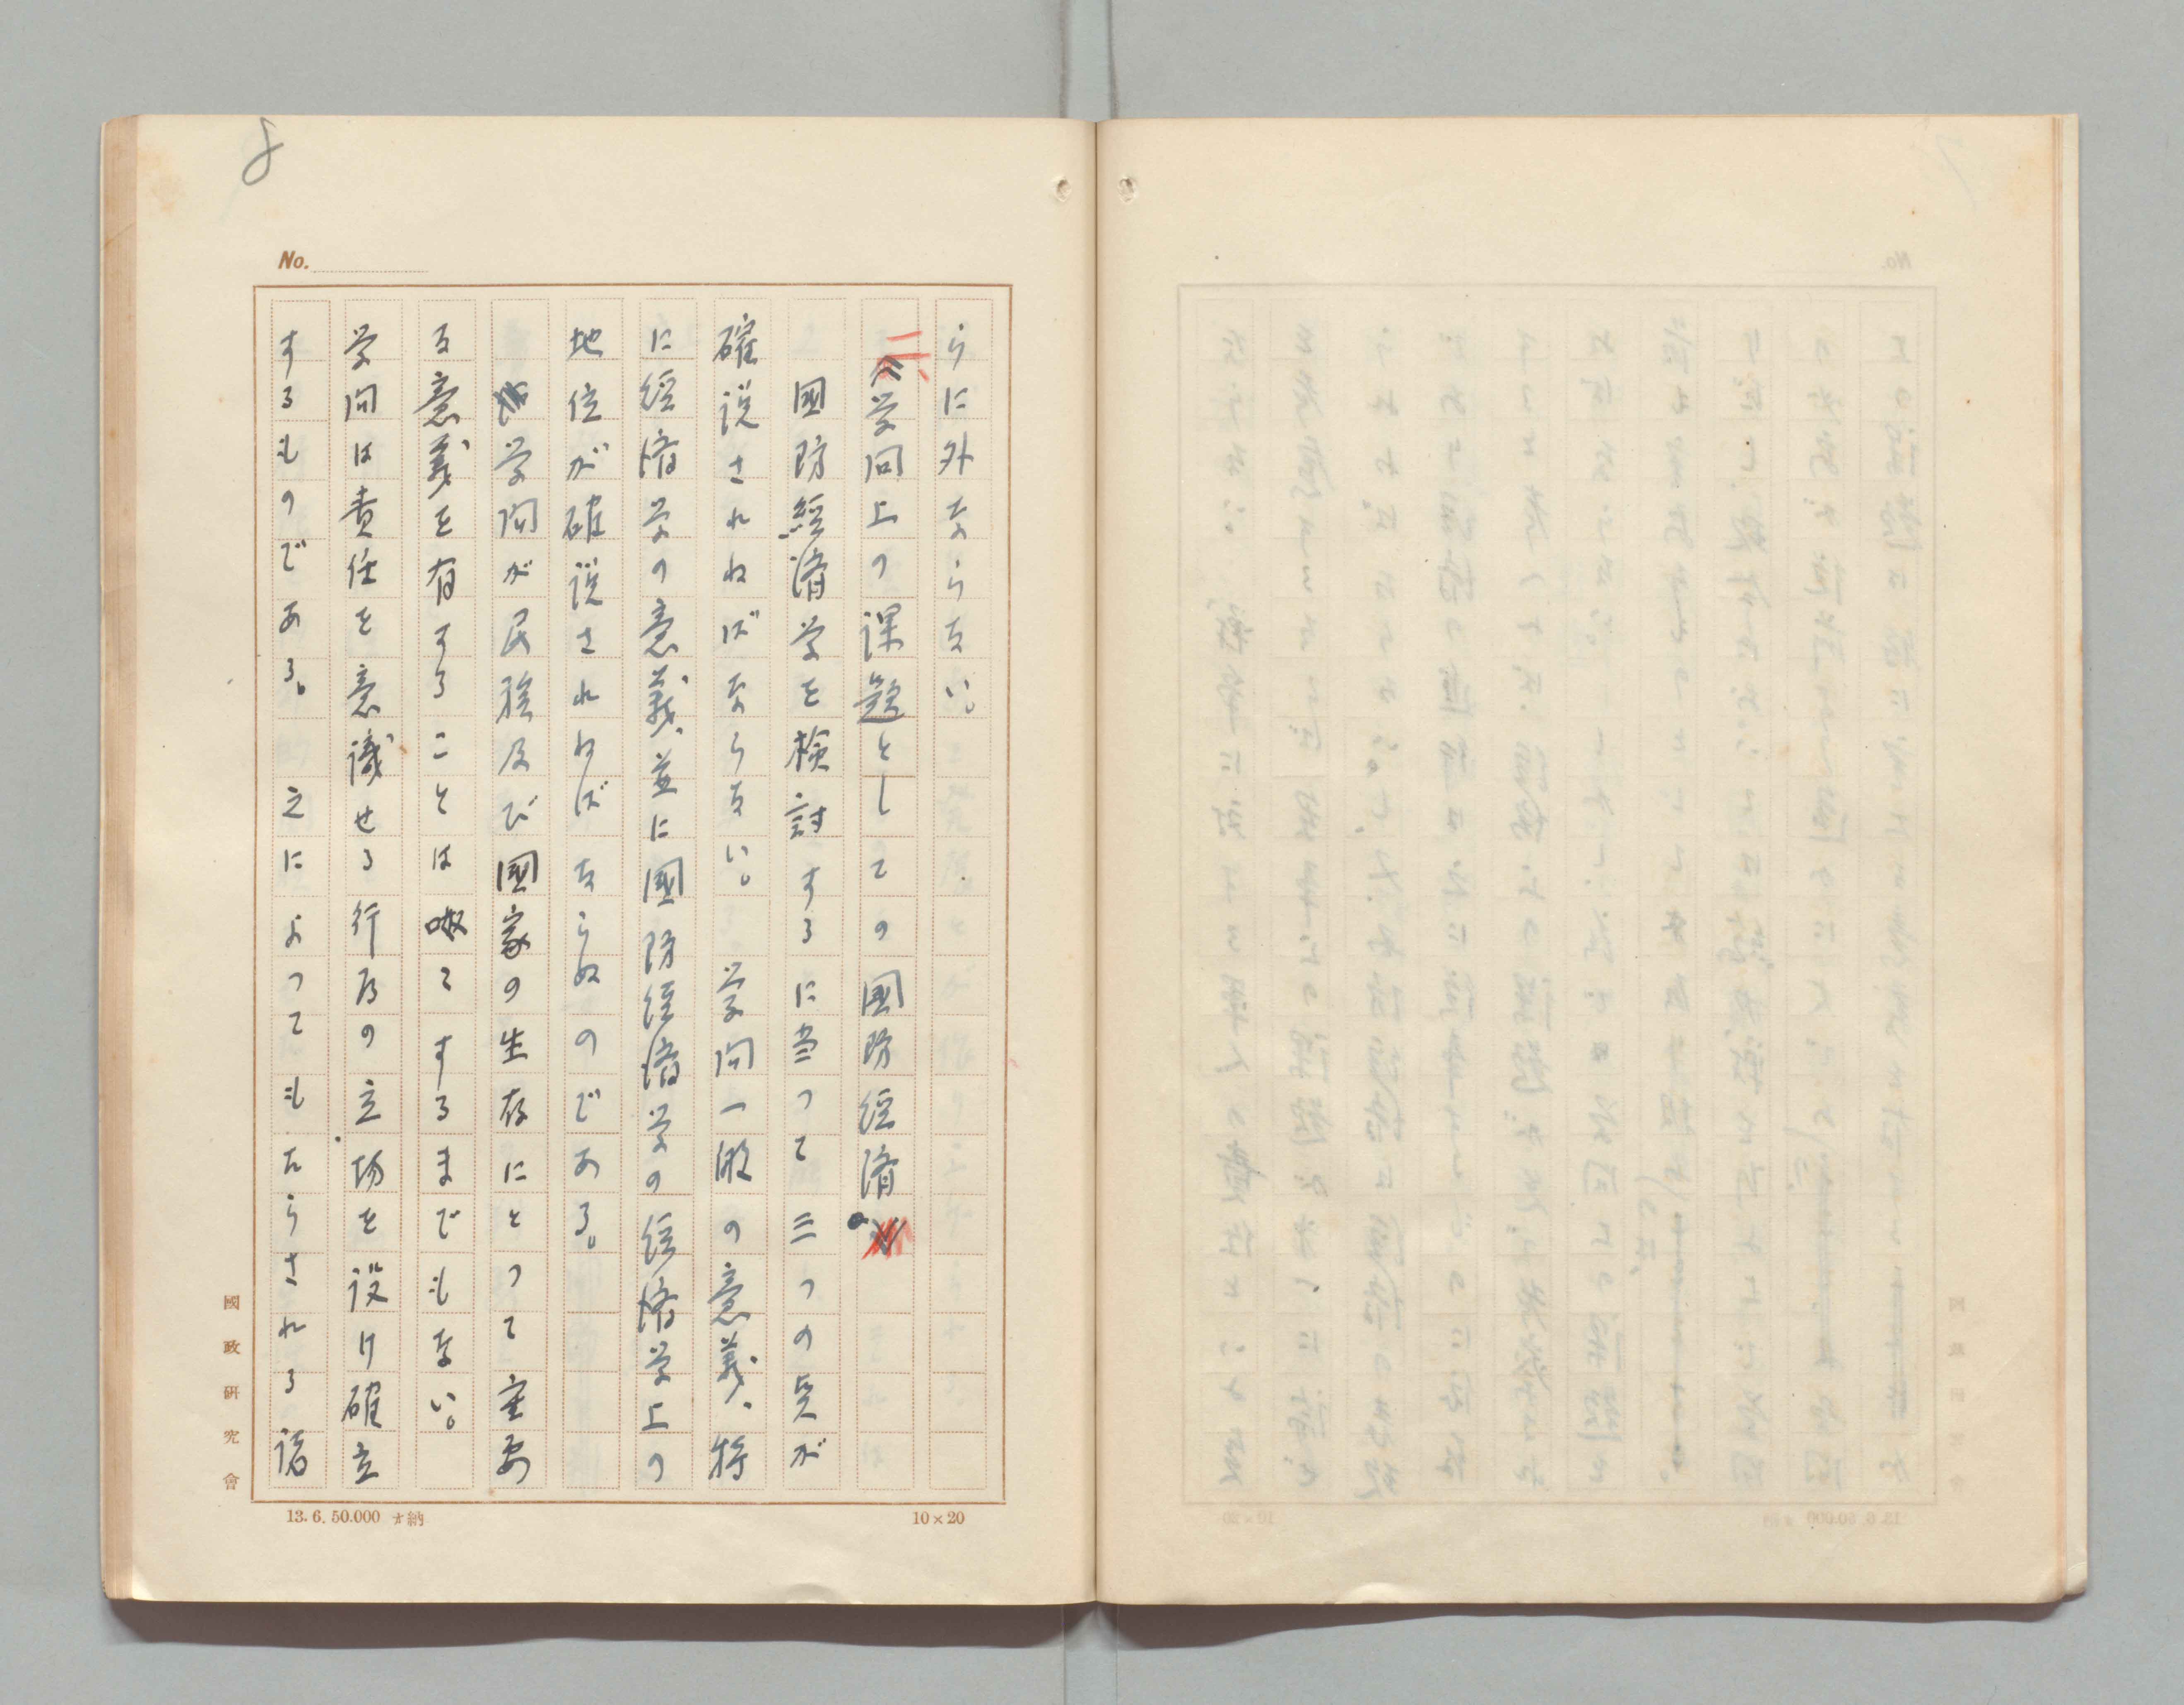 8
No.
らに外ならない。
二、学问上の課題としての國防経済
國防経済学を検討するに当つて三つの点が
確説されねばならない。学问一般の意義、特
に経済学の意義、並に國防経済学の経済学上の
地位が確説されねばならぬのである。
学问が民族及び國家の生存にとつて重要
る意義を有することは敢てするまでもない。
学问は責任を意識せる行為の立場を設け確立
するものである。之によつてもたらされる諸
國政研究會
13.6.50.000 オ納
10×20